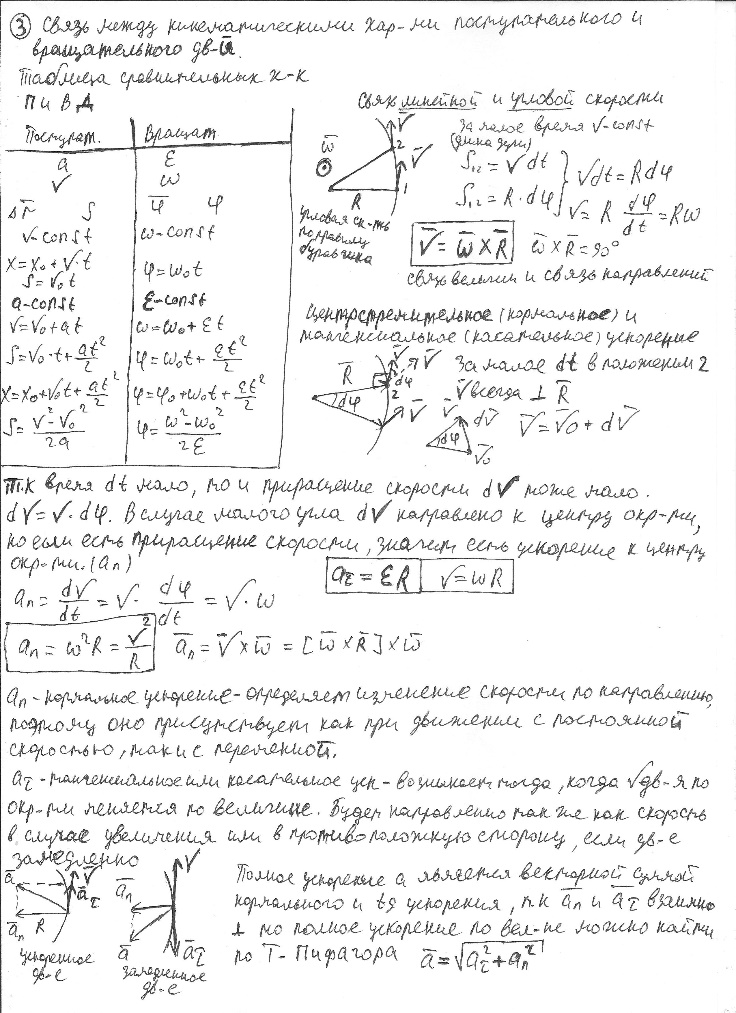 ③ Связь между кинематическими хар-ми поступательного и
вращательного дв-я.
Таблица сравнительных х-к
П и В Д
Поступат. Вращат
a ε
v ω
Δr̅ S φ̅ φ
v-const ω-const
x=x₀+vt φ=ω₀t
S=v₀t
a-const ε-const
v=v₀+at ω=ω₀+εt
S=v₀·t+at²/2 φ=ω₀t+εt²/2
x=x₀+v₀t+at²/2 φ=φ₀+ω₀t+εt²/2
S=(v²-v₀²)/2a φ=(ω²-ω₀²)/2ε
Связь линейной и угловой скорости
за малое время v-const
(длина дуги)
S₁₂=v dt
S₁₂=R·dφ } vdt=Rdφ
v=R dφ/dt=Rω
ω̅ v̅ 2 v̅ 1 R
угловая ск-ть
по правилу
буравчика
v̅=ω̅×R̅ ω̅×R̅=90°
связь величин и связь направлений
Центростремительное (нормальное) и
тангенсиальное (касательное) ускорение
За малое dt в положении 2
v̅ всегда ⊥ R̅
v̅=v̅₀+dv̅
R̅ v̅ v̅ dφ 2 dφ v̅ v̅ dv̅ dφ v̅₀
Т.к время dt мало, то и приращение скорости dv тоже мало.
dv=v·dφ. В случае малого угла dv направлено к центру окр-ти,
но если есть приращение скорости, значит есть ускорение к центру
окр-ти. (aₙ)
a_τ=εR v=ωR
aₙ=dv/dt=v·dφ/dt=v·ω
aₙ=ω²R=v²/R a̅ₙ=v̅×ω̅=[ω̅×R̅]×ω̅
aₙ-нормальное ускорение-определяет изменение скорости по направлению,
поэтому оно присутствует как при движении с постоянной
скоростью, так и с переменной.
a_τ-тангенсиальное или касательное уск-возникает тогда, когда v дв-я по
окр-ти меняется по величине. Будет направленно так же как скорость
в случае увеличения или в противоположную сторону, если дв-е
замедленно
a̅ v̅ a̅_τ a̅ₙ R
ускоренное
дв-е
v a̅ₙ a̅ a̅_τ
замедленное
дв-е
Полное ускорение a является векторной суммой
нормального и tg ускорения, т.к a̅ₙ и a̅_τ взаимно
⊥ то полное ускорение по вел-не можно найти
по Т-Пифагора a̅=√(a_τ²+aₙ²)